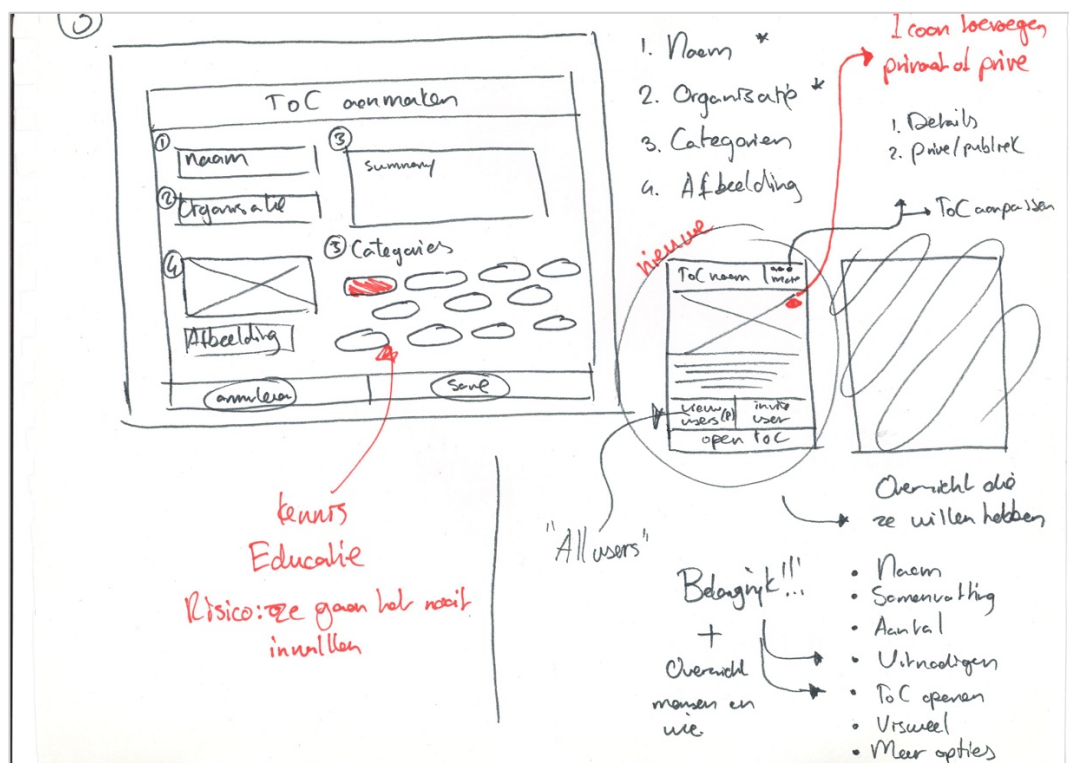 ③
ToC aanmaken
①
naam
② Organisatie
③
summary
③ Categories
④
Afbeelding
annuleren
save
kennis
Educatie
Risico: ze gaan het nooit
invullen
1. Naam *
2. Organisatie *
3. Categorien
4. Afbeelding
Icoon toevoegen
privaat of prive
1. Details
2. prive/publiek
ToC aanpassen
nieuwe
ToC naam
view
users (P)
invite
user
open ToC
"All users"
Overzicht die
ze willen hebben
Belangrijk!!!
+
Overzicht
mensen en
wie
• Naam
• Samenvatting
• Aantal
• Uitnodigen
• ToC openen
• Visueel
• Meer opties